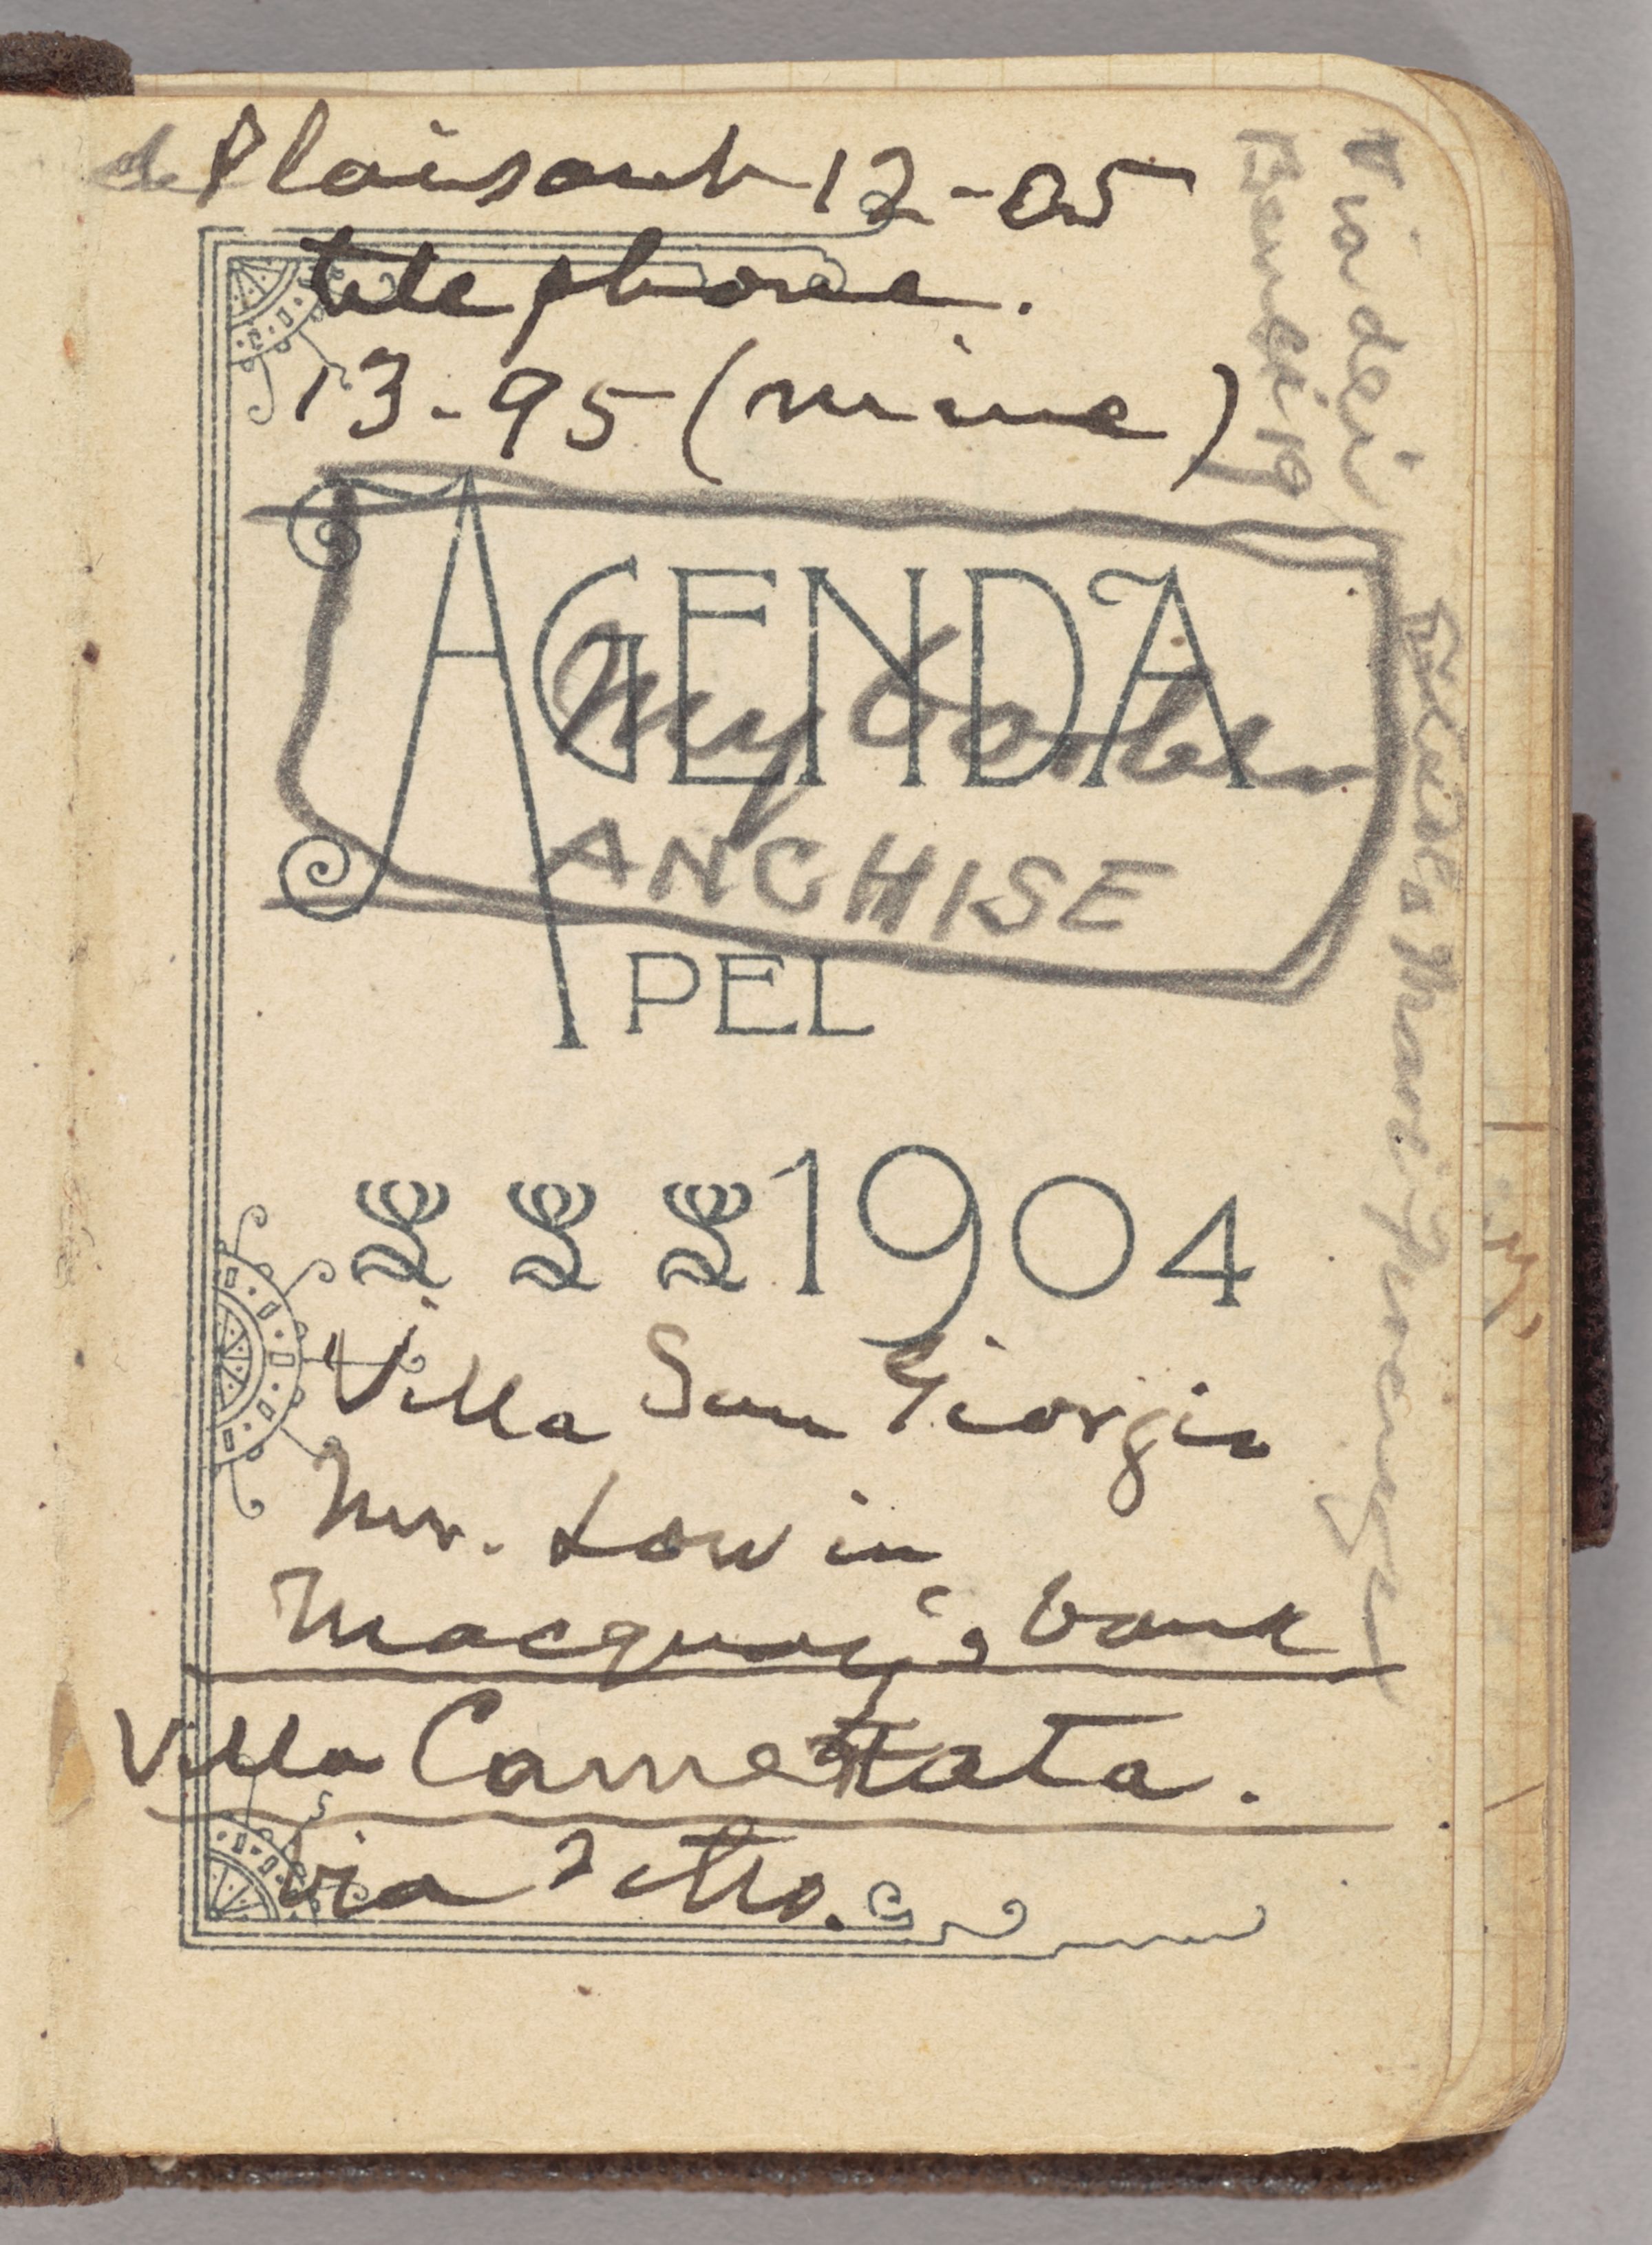 de Plaisant 12-05
telephone.
13-95 (mine)
Via dei
Benci 19
AGENDA
My
ANCHISE
PEL
1904
Villa San Giorgio
Mr. Low in
Macquay's bank
Villa
Via